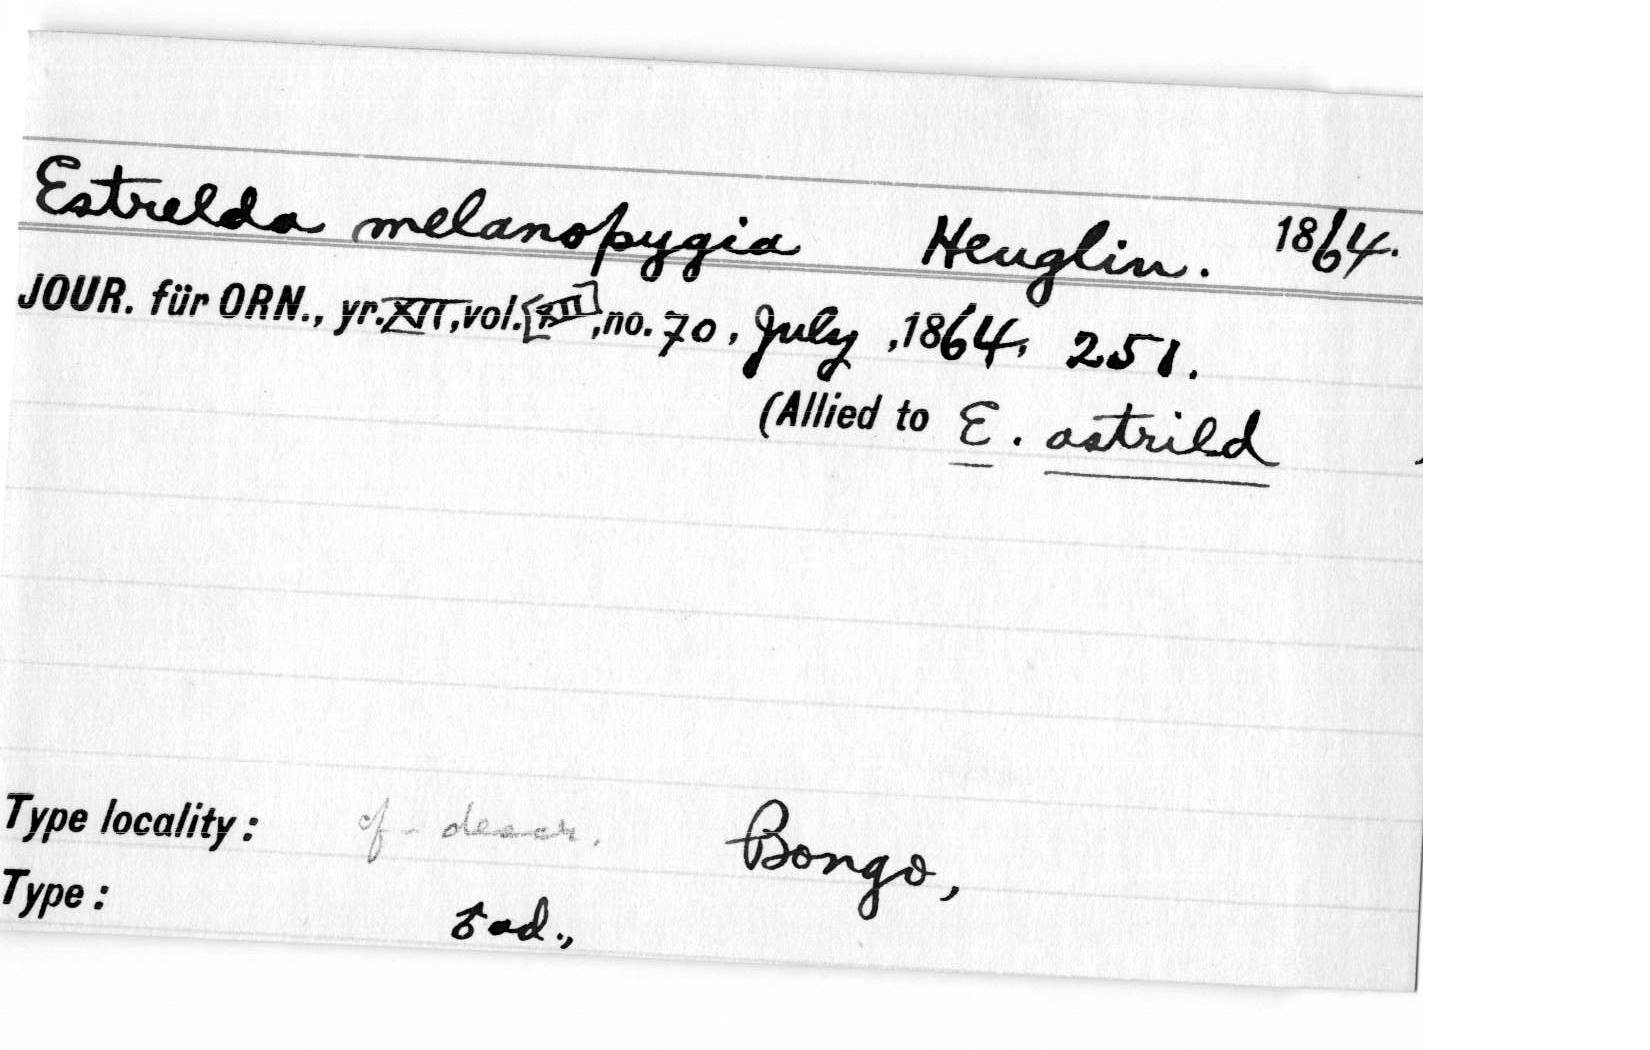 Estrelda melanopygia Heuglin. 1864.
JOUR. für ORN., yr. XII, vol. [XII], no. 70, July, 1864, 251.
(Allied to E. astrild )
Type locality: cf. descr. Bongo,
Type: ♂ ad.,